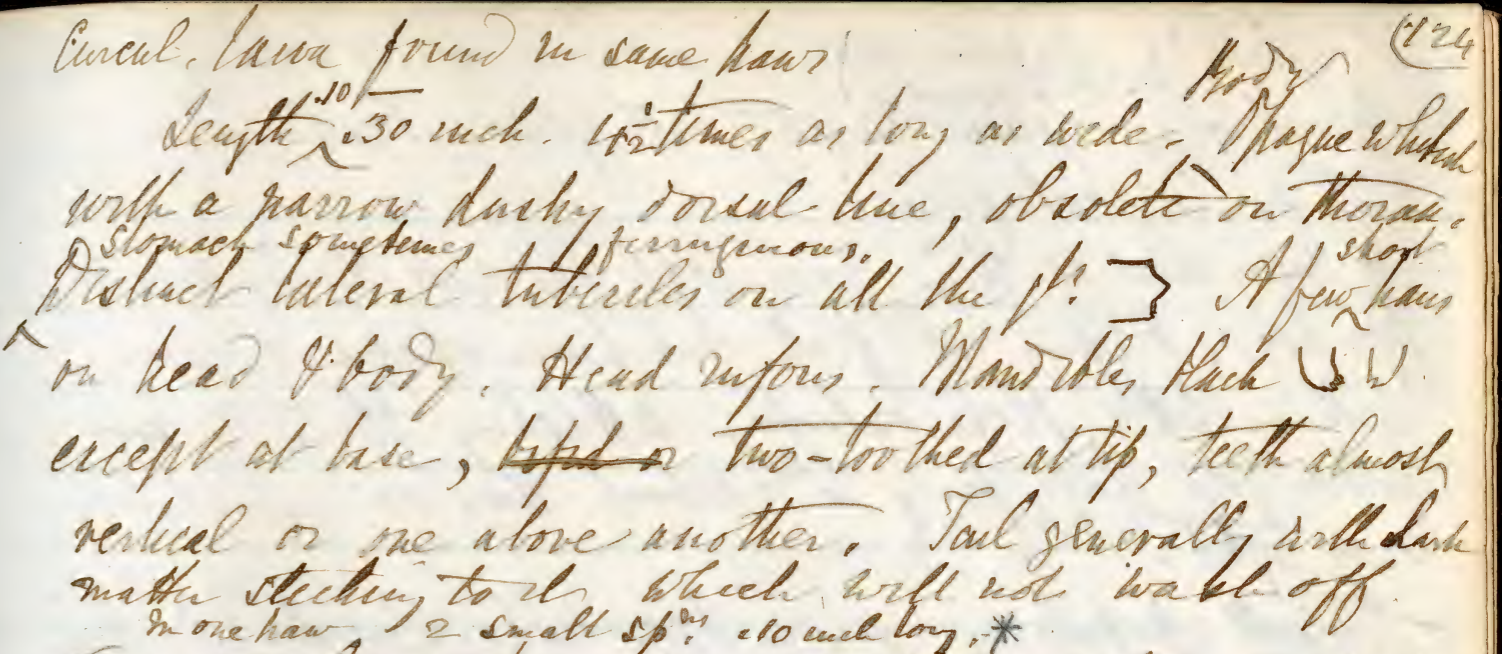 124
Curcul. larva found in same haws
Body
Length .10 – .30 inch. 4½ times as long as wide. Opaque whitish
with a narrow dusky dorsal line, obsolete on thorax.
stomach sometimes ferruginous.
Distinct lateral tubercles on all the jts. A few short hairs
on head & body. Head rufous. Mandibles black
except at base, bifid or two-toothed at tip, teeth almost
vertical or one above another. Tail generally with dark
matter sticking to it which will not wash off
In one haw 2 small spns. .10 inch long. *